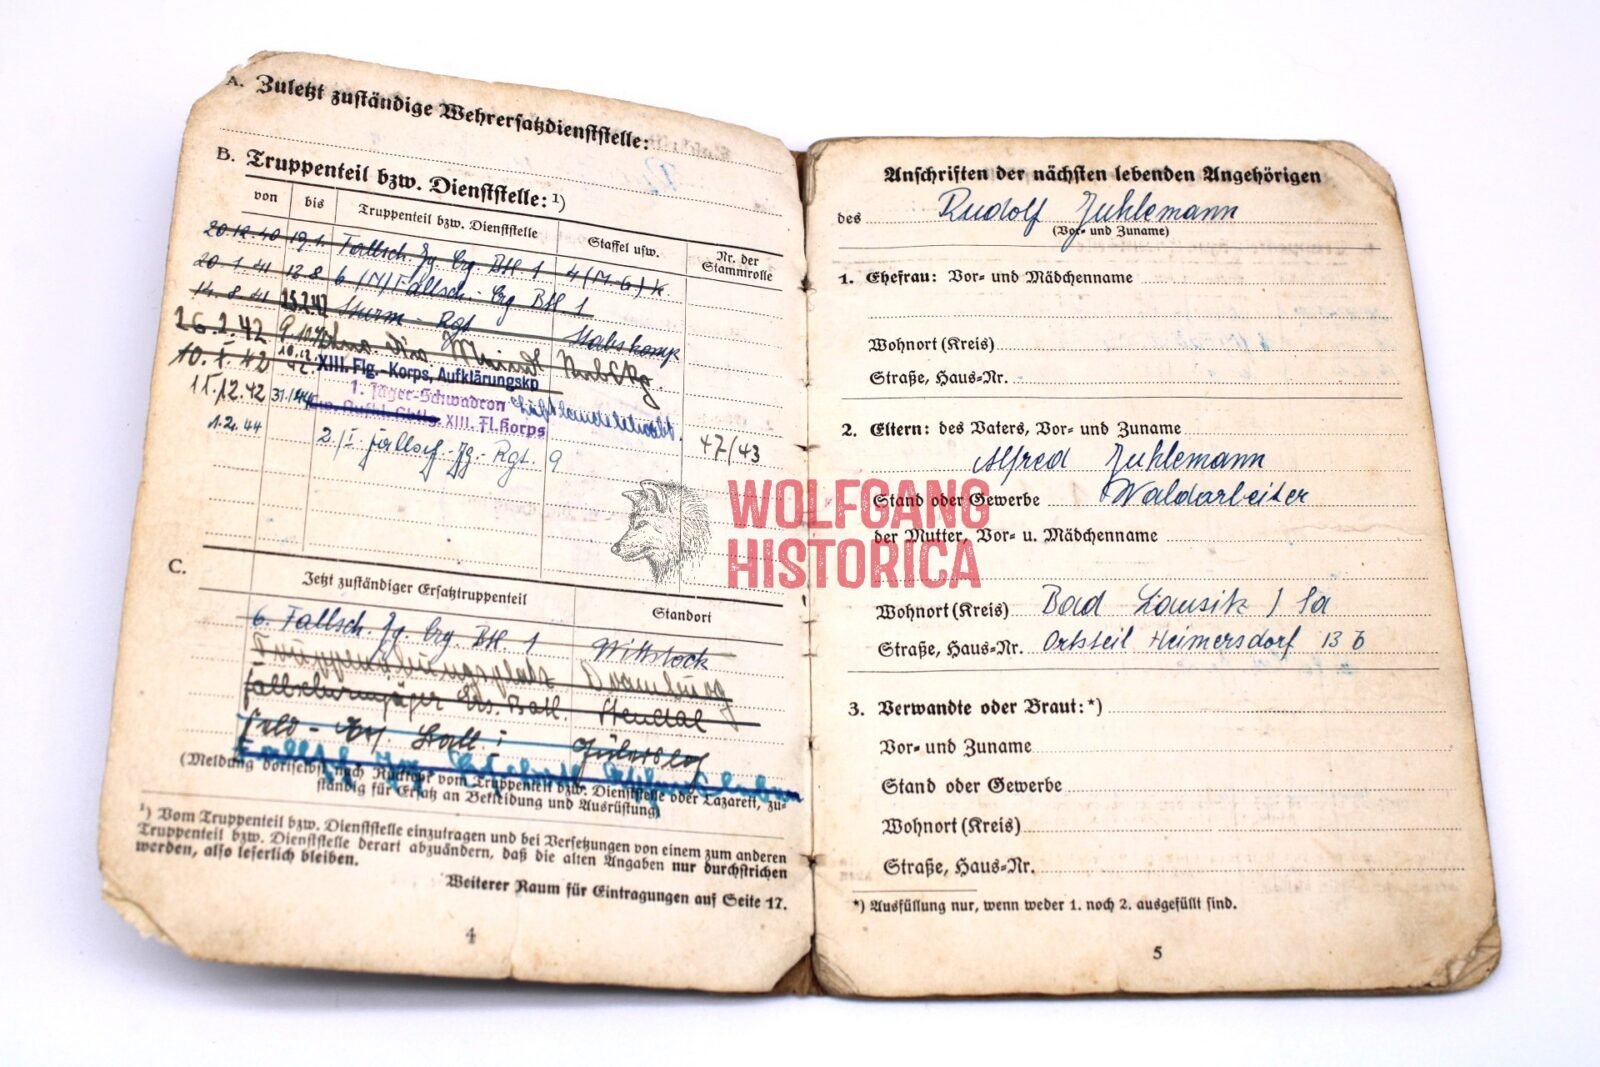 A. Zuletzt zuständige Wehrersatzdienststelle:
B. Truppenteil bzw. Dienststelle: ¹)
von bis Truppenteil bzw. Dienststelle Staffel usw. Nr. der Stammrolle
20.12.40 19.1. Fallsch. Jg. Erg. Btl 1 4 (M.G.) K.
20.1.41 12.8 6 (N) Fallsch.-Erg Btl 1
14.8.41 25.2.42 Sturm-Rgt Stabskomp
26.2.42
10.X.42 16.12. 42. XIII. Flg.-Korps, Aufklärungskp
15.12.42 1. Jäger-Schwadron
XIII. Fl. Korps 47/43
1.2.44 2./I. Fallsch.-Jg.-Rgt. 9
WOLFGANG
HISTORICA
C. Jetzt zuständiger Ersatztruppenteil Standort
6. Fallsch. Jg. Erg. Btl. 1 Wittstock
Truppenübungsplatz
Fallschirmjäger Ers. Batl. Stendal
Feld-
(Meldung dortselbst nach Rückkehr vom Truppenteil bzw. Dienststelle oder Lazarett, zu-
ständig für Ersatz an Bekleidung und Ausrüstung)
¹) Vom Truppenteil bzw. Dienststelle einzutragen und bei Versetzungen von einem zum anderen
Truppenteil bzw. Dienststelle derart abzuändern, daß die alten Angaben nur durchstrichen
werden, also leserlich bleiben.
Weiterer Raum für Eintragungen auf Seite 17.
4
Anschriften der nächsten lebenden Angehörigen
des Rudolf Juhlemann
(Vor- und Zuname)
1. Ehefrau: Vor- und Mädchenname
Wohnort (Kreis)
Straße, Haus-Nr.
2. Eltern: des Vaters, Vor- und Zuname
Alfred Juhlemann
Stand oder Gewerbe Waldarbeiter
der Mutter, Vor- u. Mädchenname
Wohnort (Kreis) Bad Lausik / Sa
Straße, Haus-Nr. Ortsteil Heimersdorf 13 b
3. Verwandte oder Braut: *)
Vor- und Zuname
Stand oder Gewerbe
Wohnort (Kreis)
Straße, Haus-Nr.
*) Ausfüllung nur, wenn weder 1. noch 2. ausgefüllt sind.
5